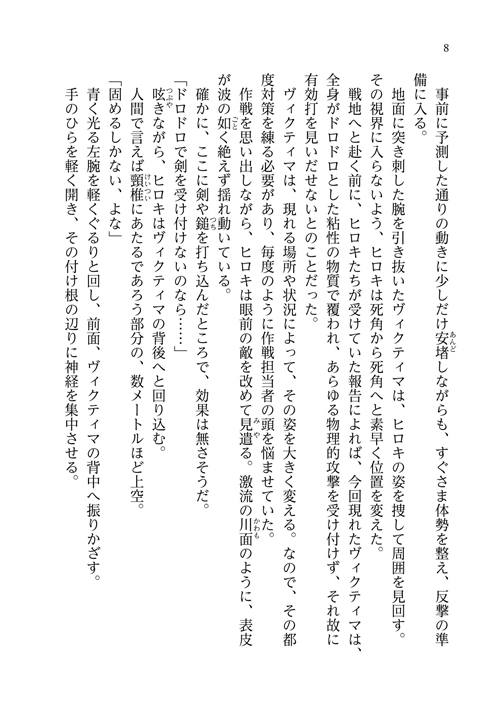 8
事前に予測した通りの動きに少しだけ安堵しながらも、すぐさま体勢を整え、反撃の準
備に入る。
地面に突き刺した腕を引き抜いたヴィクティマは、ヒロキの姿を捜して周囲を見回す。
その視界に入らないよう、ヒロキは死角から死角へと素早く位置を変えた。
戦地へと赴く前に、ヒロキたちが受けていた報告によれば、今回現れたヴィクティマは、
全身がドロドロとした粘性の物質で覆われ、あらゆる物理的攻撃を受け付けず、それ故に
有効打を見いだせないとのことだった。
ヴィクティマは、現れる場所や状況によって、その姿を大きく変える。なので、その都
度対策を練る必要があり、毎度のように作戦担当者の頭を悩ませていた。
作戦を思い出しながら、ヒロキは眼前の敵を改めて見遣る。激流の川面のように、表皮
が波の如く絶えず揺れ動いている。
確かに、ここに剣や鎚を打ち込んだところで、効果は無さそうだ。
「ドロドロで剣を受け付けないのなら……」
呟きながら、ヒロキはヴィクティマの背後へと回り込む。
人間で言えば頸椎にあたるであろう部分の、数メートルほど上空。
「固めるしかない、よな」
青く光る左腕を軽くぐるりと回し、前面、ヴィクティマの背中へ振りかざす。
手のひらを軽く開き、その付け根の辺りに神経を集中させる。